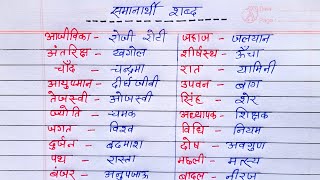 समानार्थी शब्द
आजीविका - रोजी रोटी
अंतरिक्ष - खगोल
चाँद - चन्द्रमा
आयुष्मान - दीर्घजीवी
तेजस्वी - ओजस्वी
ज्योति - चमक
जगत - विश्व
दुर्जन - बदमाश
पथ - रास्ता
बंजर - अनुपजाऊ
जहाज - जलयान
शीर्षस्थ - ऊँचा
रात - यामिनी
उपवन - बाग
सिंह - शेर
अध्यापक - शिक्षक
विधि - नियम
दोष - अवगुण
मछली - मत्स्य
बादल - नीरज